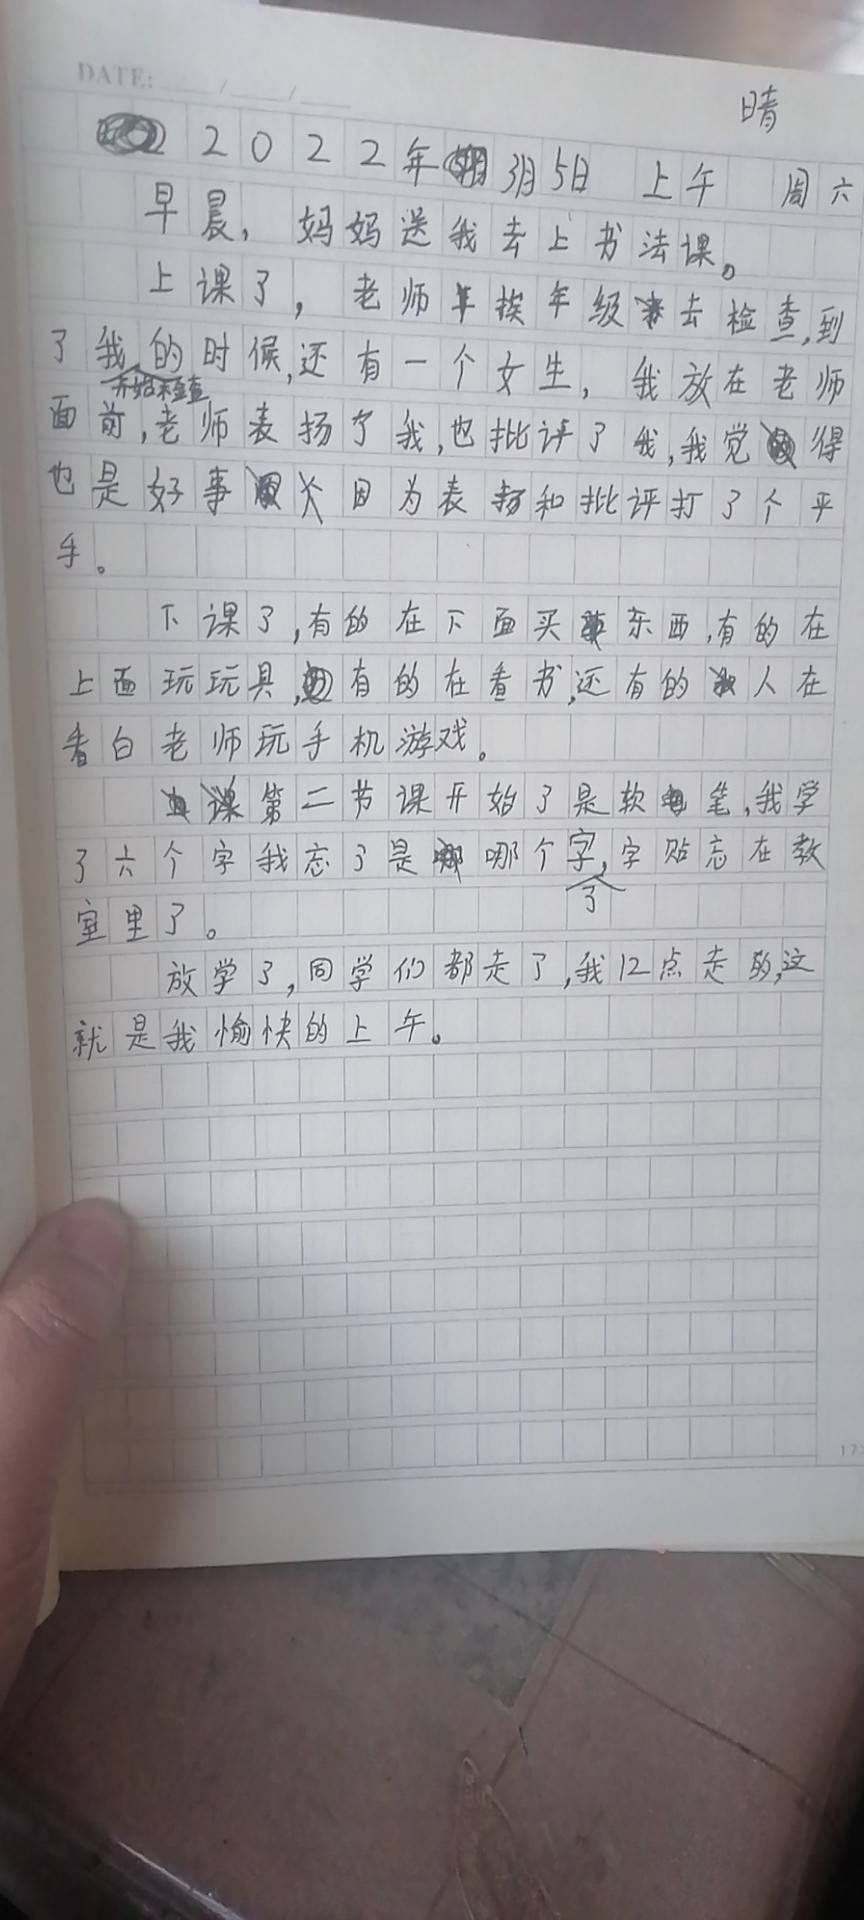 DATE: ___/___/___
晴
2022年3月5日 上午 周六
早晨，妈妈送我去上书法课。
上课了，老师挨年级去检查，到
了我的时候，还有一个女生，我放在老师
开始检查
面前，老师表扬了我，也批评了我，我觉得
也是好事因为表扬和批评打了个平
手。
下课了，有的在下面买东西，有的在
上面玩玩具，有的在看书，还有的人在
看白老师玩手机游戏。
第二节课开始了是软笔，我学
了六个字我忘了是哪个字，字贴忘在教
了
室里了。
放学了，同学们都走了，我12点走的，这
就是我愉快的上午。